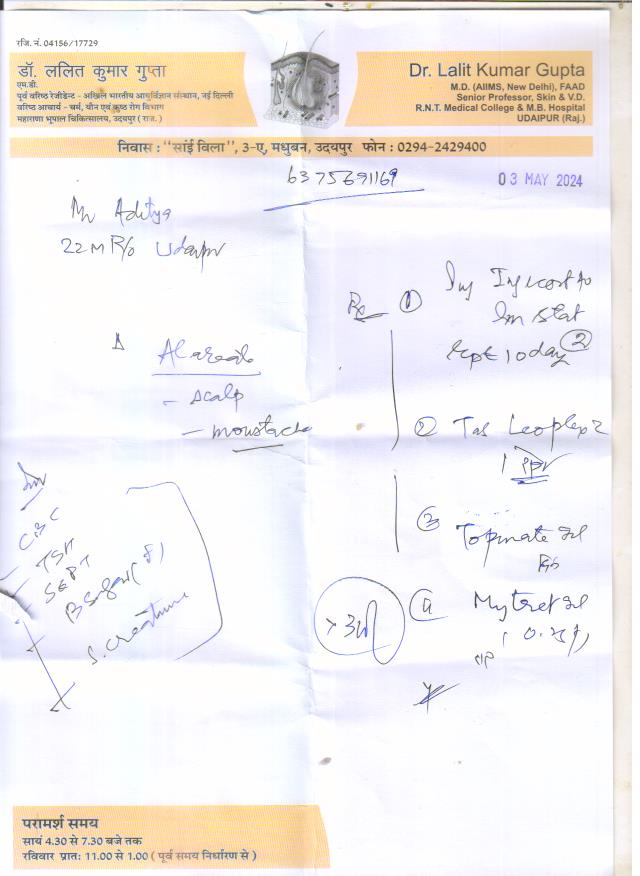 रजि. नं. 04156/17729
डॉ. ललित कुमार गुप्ता
एम.डी.
पूर्व वरिष्ठ रेजीडेन्ट - अखिल भारतीय आयुर्विज्ञान संस्थान, नई दिल्ली
वरिष्ठ आचार्य - चर्म, यौन एवं कुष्ठ रोग विभाग
महाराणा भूपाल चिकित्सालय, उदयपुर (राज.)
Dr. Lalit Kumar Gupta
M.D. (AIIMS, New Delhi), FAAD
Senior Professor, Skin & V.D.
R.N.T. Medical College & M.B. Hospital
UDAIPUR (Raj.)
निवास : "सांई विला", 3-ए, मधुबन, उदयपुर फोन : 0294-2429400
6375691169
03 MAY 2024
Mr Aditya
22 M R/o Udaipur
Δ Al areata
- scalp
- moustache
Inv
CBC
TSH
B Sugar (F)
S. Creatinine
Rx ① Inj
Im stat
Rept 10 day ②
② Tab
1
③ Topinate gel
④
परामर्श समय
सायं 4.30 से 7.30 बजे तक
रविवार प्रातः 11.00 से 1.00 ( पूर्व समय निर्धारण से )